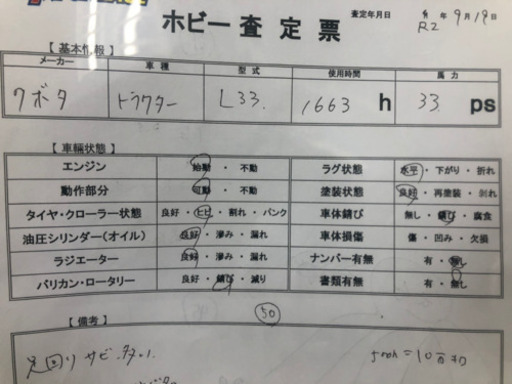 ホビー査定票
査定年月日 R2年9月19日
【基本情報】
メーカー 車種 型式 使用時間 馬力
クボタ トラクター L33 1663 h 33 ps
【車輛状態】
エンジン 始動・不動 ラグ状態 水平・下がり・折れ
動作部分 可動・不動 塗装状態 良好・再塗装・剥れ
タイヤ・クローラー状態 良好・ヒビ・割れ・パンク 車体錆び 無し・錆び・腐食
油圧シリンダー(オイル) 良好・滲み・漏れ 車体損傷 傷・凹み・欠損
ラジエーター 良好・滲み・漏れ ナンバー有無 有・無し
バリカン・ロータリー 良好・錆び・減り 書類有無 有・無し
【備考】 50
足回りサビ